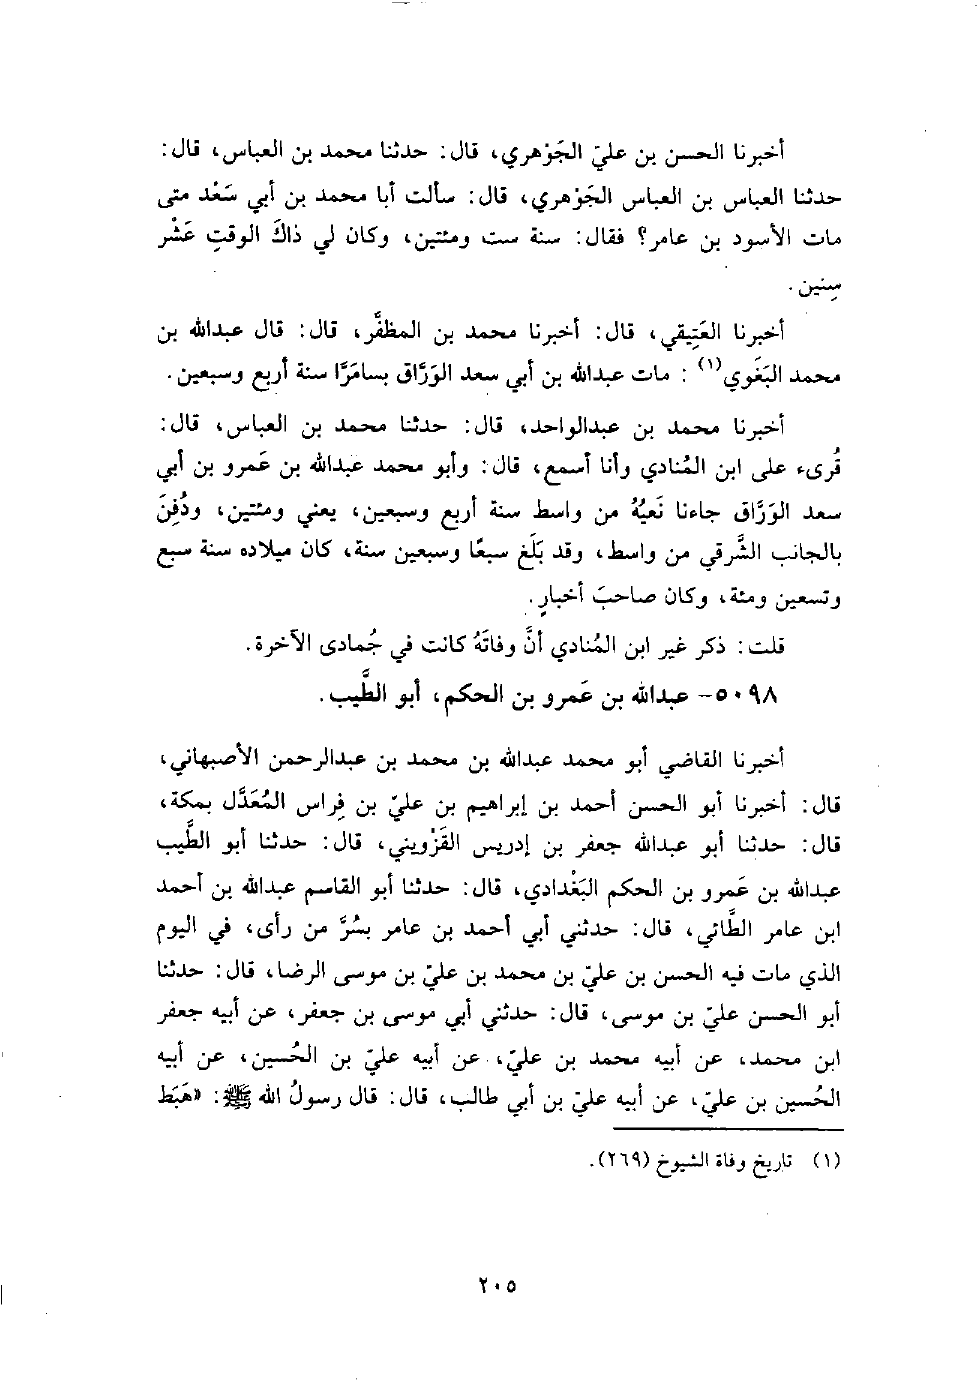 أخبرنا الحسن بن عليّ الجَوْهري، قال: حدثنا محمد بن العباس، قال:
حدثنا العباس بن العباس الجَوْهري، قال: سألت أبا محمد بن أبي سَعْد متى
مات الأسود بن عامر؟ فقال: سنة ست ومئتين، وكان لي ذاكَ الوقتِ عَشْر
سِنين.
أخبرنا العَتِيقي، قال: أخبرنا محمد بن المظفَّر، قال: قال عبدالله بن
محمد البَغَوي(١): مات عبدالله بن أبي سعد الوَرَّاق بسامَرَّا سنة أربع وسبعين.
أخبرنا محمد بن عبدالواحد، قال: حدثنا محمد بن العباس، قال:
قُرىء على ابن المُنادي وأنا أسمع، قال: وأبو محمد عبدالله بن عَمرو بن أبي
سعد الوَرَّاق جاءنا نَعيُهُ من واسط سنة أربع وسبعين، يعني ومئتين، ودُفِنَ
بالجانب الشَّرقي من واسط، وقد بَلَغ سبعًا وسبعين سنة، كان ميلاده سنة سبع
وتسعين ومئة، وكان صاحبَ أخبارٍ.
قلت: ذكر غير ابن المُنادي أنَّ وفاتَهُ كانت في جُمادى الآخرة.
٥٠٩٨- عبدالله بن عَمرو بن الحكم، أبو الطَّيب.
أخبرنا القاضي أبو محمد عبدالله بن محمد بن عبدالرحمن الأصبهاني،
قال: أخبرنا أبو الحسن أحمد بن إبراهيم بن عليّ بن فِراس المُعَدَّل بمكة،
قال: حدثنا أبو عبدالله جعفر بن إدريس القَزْويني، قال: حدثنا أبو الطَّيب
عبدالله بن عَمرو بن الحكم البَغْدادي، قال: حدثنا أبو القاسم عبدالله بن أحمد
ابن عامر الطَّائي، قال: حدثني أبي أحمد بن عامر بسُرَّ من رأى، في اليوم
الذي مات فيه الحسن بن عليّ بن محمد بن عليّ بن موسى الرضا، قال: حدثنا
أبو الحسن عليّ بن موسى، قال: حدثني أبي موسى بن جعفر، عن أبيه جعفر
ابن محمد، عن أبيه محمد بن عليّ، عن أبيه عليّ بن الحُسين، عن أبيه
الحُسين بن عليّ، عن أبيه عليّ بن أبي طالب، قال: قال رسولُ الله ﷺ: «هَبَط
(١) تاريخ وفاة الشيوخ (٢٦٩).
٢٠٥